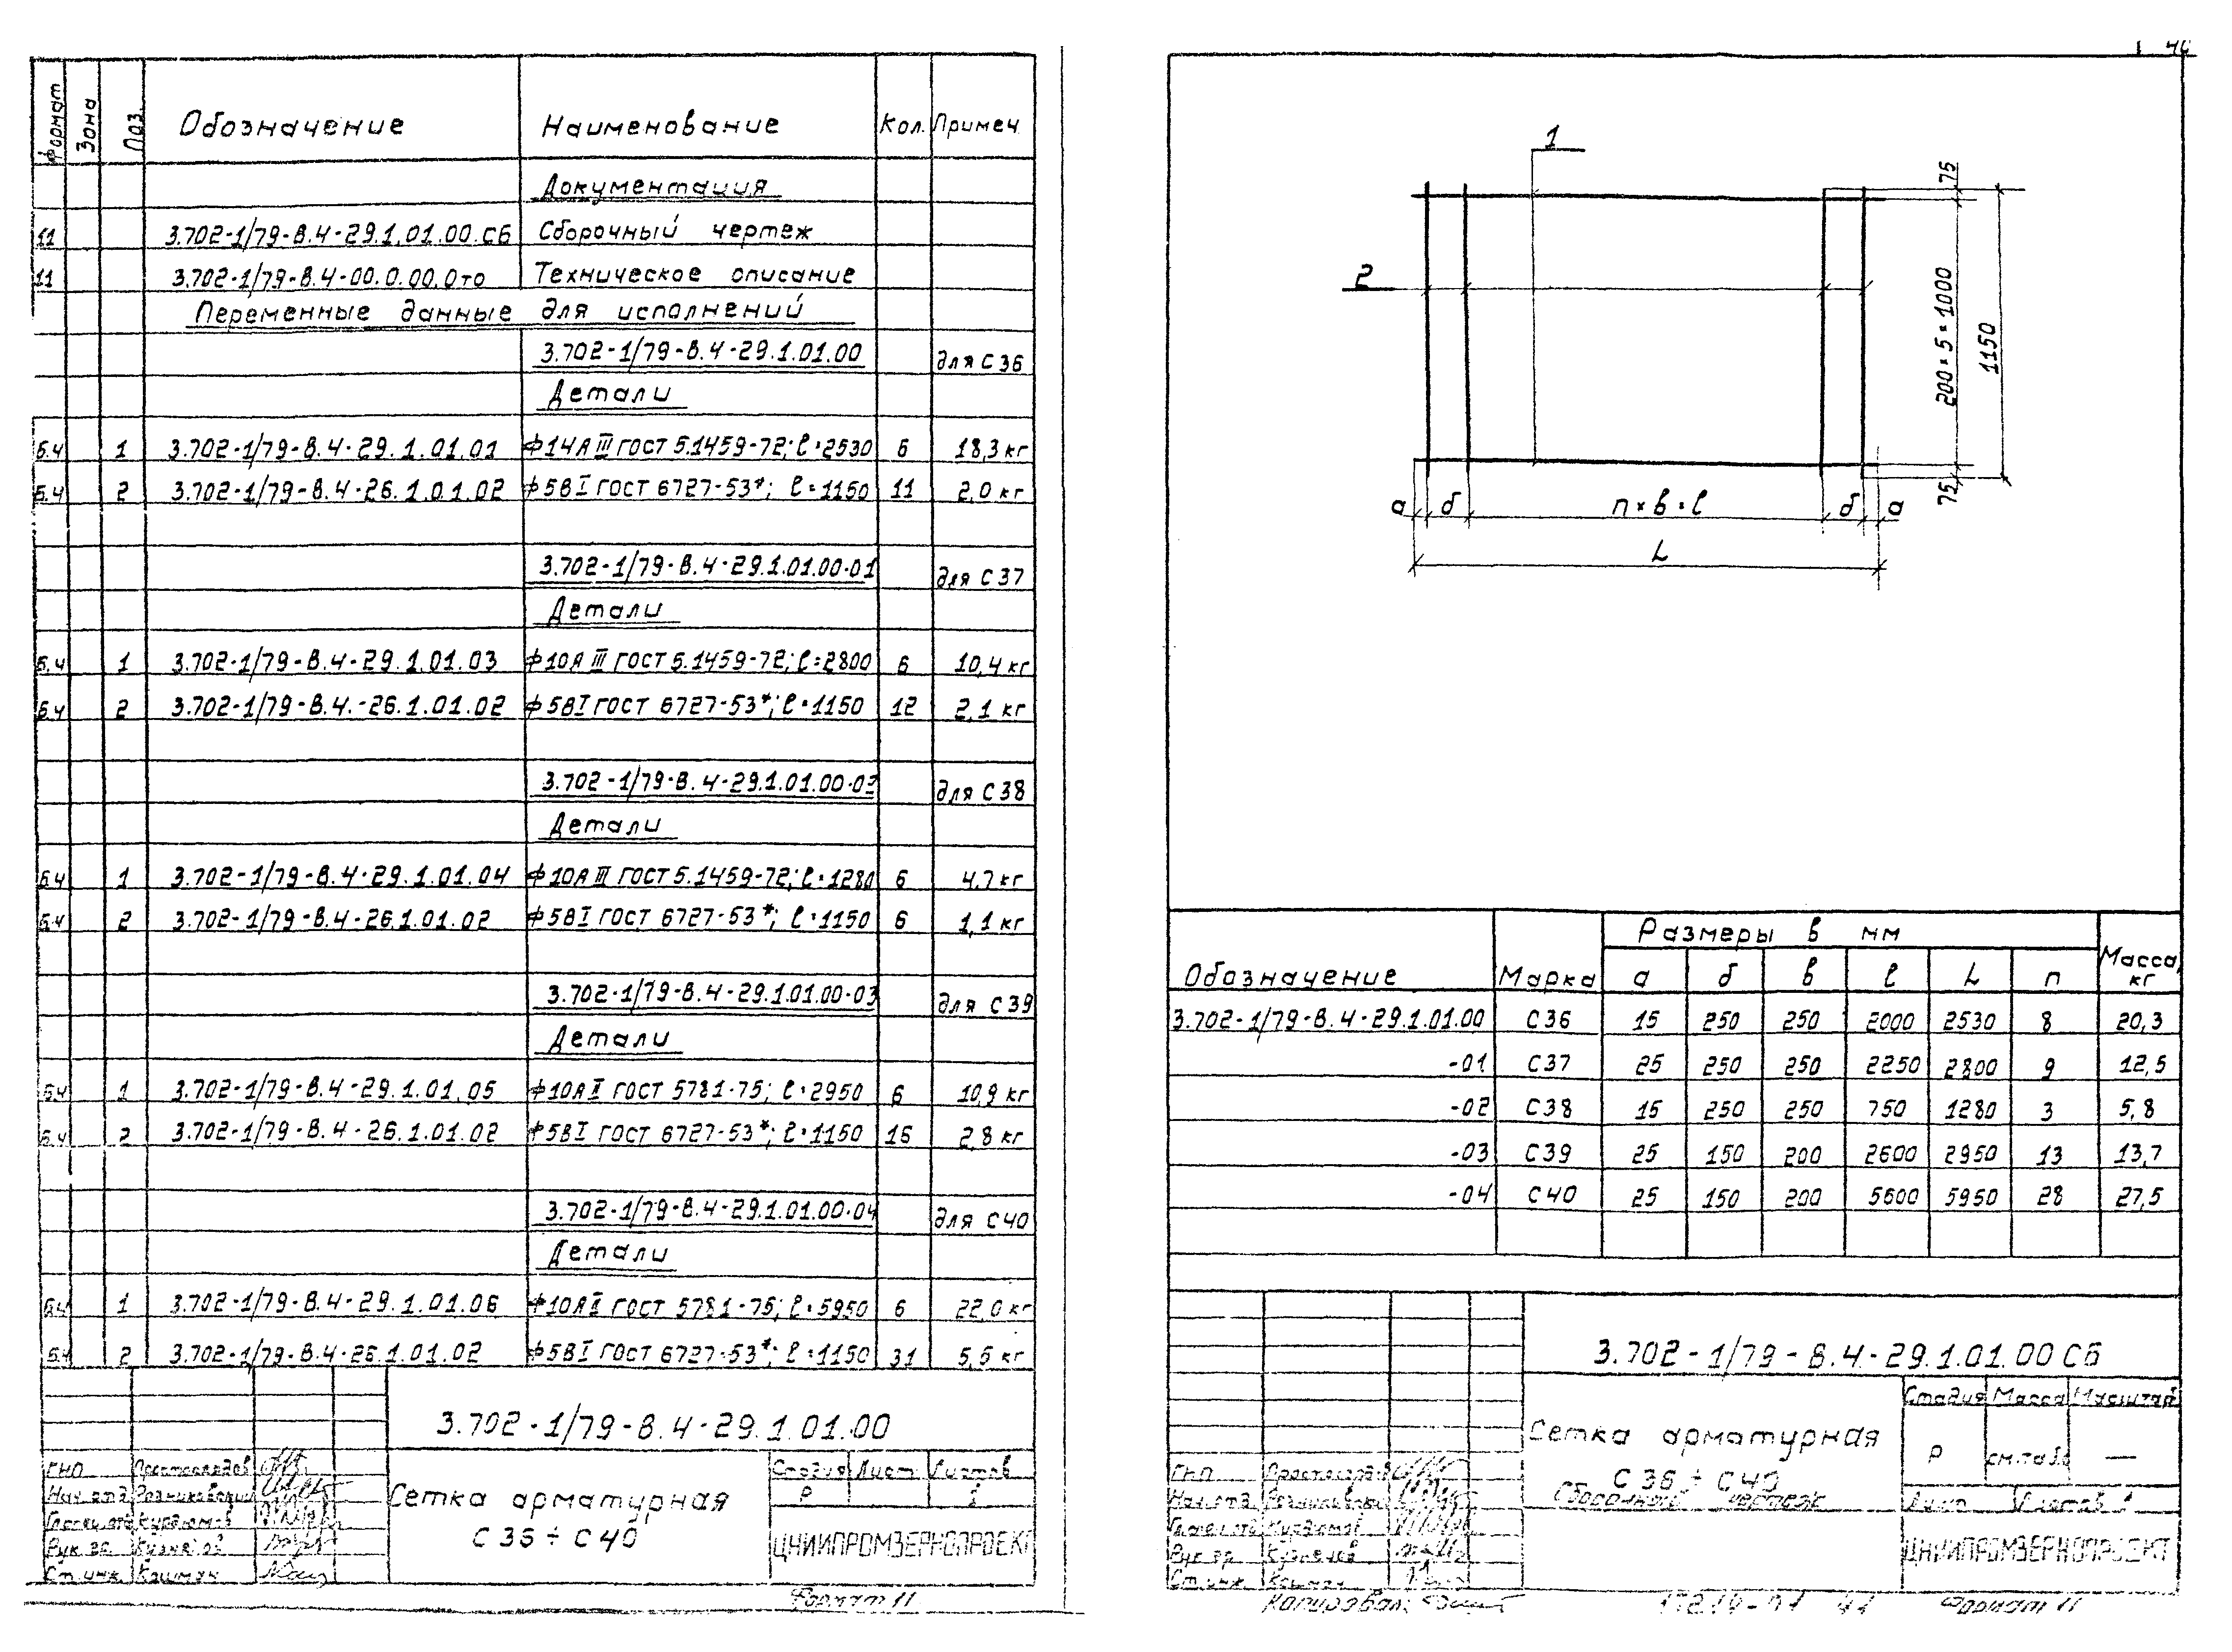 Формат Зона Поз. Обозначение Наименование Кол. Примеч.
Документация
11 3.702-1/79-В.4-29.1.01.00.СБ Сборочный чертеж
11 3.702-1/79-В.4-00.0.00.0то Техническое описание
Переменные данные для исполнений
3.702-1/79-В.4-29.1.01.00 для С36
Детали
Б.Ч 1 3.702-1/79-В.4-29.1.01.01 Ф14АIII ГОСТ 5.1459-72; ℓ=2530 6 18,3 кг
Б.Ч 2 3.702-1/79-В.4-26.1.01.02 Ф5ВI ГОСТ 6727-53*; ℓ=1150 11 2,0 кг
3.702-1/79-В.4-29.1.01.00-01 для С37
Детали
Б.Ч 1 3.702-1/79-В.4-29.1.01.03 Ф10АIII ГОСТ 5.1459-72; ℓ=2800 6 10,4 кг
Б.Ч 2 3.702-1/79-В.4.-26.1.01.02 Ф5ВI ГОСТ 6727-53*; ℓ=1150 12 2,1 кг
3.702-1/79-В.4-29.1.01.00-03 для С38
Детали
Б.Ч 1 3.702-1/79-В.4-29.1.01.04 Ф10АIII ГОСТ 5.1459-72; ℓ=1280 6 4,7 кг
Б.Ч 2 3.702-1/79-В.4-26.1.01.02 Ф5ВI ГОСТ 6727-53*; ℓ=1150 6 1,1 кг
3.702-1/79-В.4-29.1.01.00-03 для С39
Детали
Б.Ч 1 3.702-1/79-В.4-29.1.01.05 Ф10АII ГОСТ 5781-75; ℓ=2950 6 10,9 кг
Б.Ч 2 3.702-1/79-В.4-26.1.01.02 Ф5ВI ГОСТ 6727-53*; ℓ=1150 16 2,8 кг
3.702-1/79-В.4-29.1.01.00-04 для С40
Детали
Б.Ч 1 3.702-1/79-В.4-29.1.01.06 Ф10АII ГОСТ 5781-75; ℓ=5950 6 22,0 кг
Б.Ч 2 3.702-1/79-В.4-26.1.01.02 Ф5ВI ГОСТ 6727-53*; ℓ=1150 31 5,5 кг
3.702-1/79-В.4-29.1.01.00
ГИП
Нач.отд.
Курдюмов
Рук.гр.
Ст.инж. Кацман
Сетка арматурная
С36÷С40
Стадия Лист Листов
Р 1
ЦНИИПРОМЗЕРНОПРОЕКТ
Формат 11
46
1
2
75
200×5=1000
1150
75
а б п×в=ℓ б а
L
Обозначение Марка Размеры в мм Масса, кг
а б в ℓ L п
3.702-1/79-В.4-29.1.01.00 С36 15 250 250 2000 2530 8 20,3
-01 С37 25 250 250 2250 2800 9 12,5
-02 С38 15 250 250 750 1280 3 5,8
-03 С39 25 150 200 2600 2950 13 13,7
-04 С40 25 150 200 5600 5950 28 27,5
3.702-1/79-В.4-29.1.01.00 СБ
ГИП
Нач.отд.
Рук.гр.
Ст.инж. Кацман
Сетка арматурная
С36÷С40
Сборочный чертеж
Стадия Масса Масштаб
Р см.табл —
Лист Листов 1
ЦНИИПРОМЗЕРНОПРОЕКТ
Копировал:
Формат 11